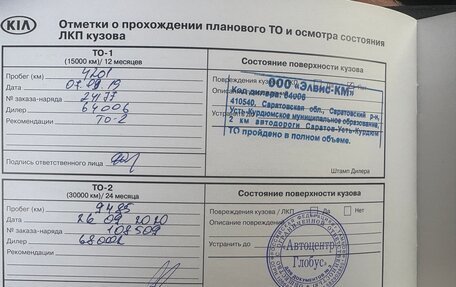 KIA
Отметки о прохождении планового ТО и осмотра состояния
ЛКП кузова
ТО-1
(15000 км)/ 12 месяцев
Состояние поверхности кузова
Пробег (км) 4201
Дата 19
№ заказа-наряда 24177
Дилер 64006
Рекомендации ТО-2
Подпись ответственного лица
Повреждения кузова
Описание
Устранить до
ООО "Элвис-КМ"
Код дилера: 64006
410540, Саратовская обл., Саратовский р-н,
Усть-Курдюмское муниципальное образование,
2 км автодороги Саратов-Усть-Курдюм
ТО пройдено в полном объеме.
Штамп Дилера
ТО-2
(30000 км)/ 24 месяца
Состояние поверхности кузова
Пробег (км) 9485
Дата 26 09 2020
№ заказа-наряда 108509
Дилер
Рекомендации
Повреждения кузова / ЛКП
Да
Нет
Описание повреждений
Устранить до
«Автоцентр
Глобус»